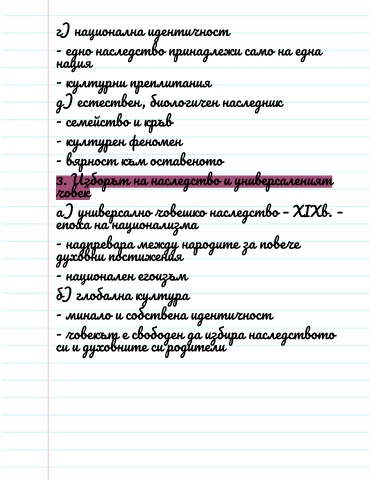 г) национална идентичност
- едно наследство принадлежи само на една
нация
- културни преплитания
д) естествен, биологичен наследник
- семейство и кръв
- културен феномен
- вярност към оставеното
3. Изборът на наследство и универсаленият
човек
а) универсално човешко наследство – XIXв. –
епоха на национализма
- надпревара между народите за повече
духовни постижения
- национален егоизъм
б) глобална култура
- минало и собствена идентичност
- човекът е свободен да избира наследството
си и духовните си родители